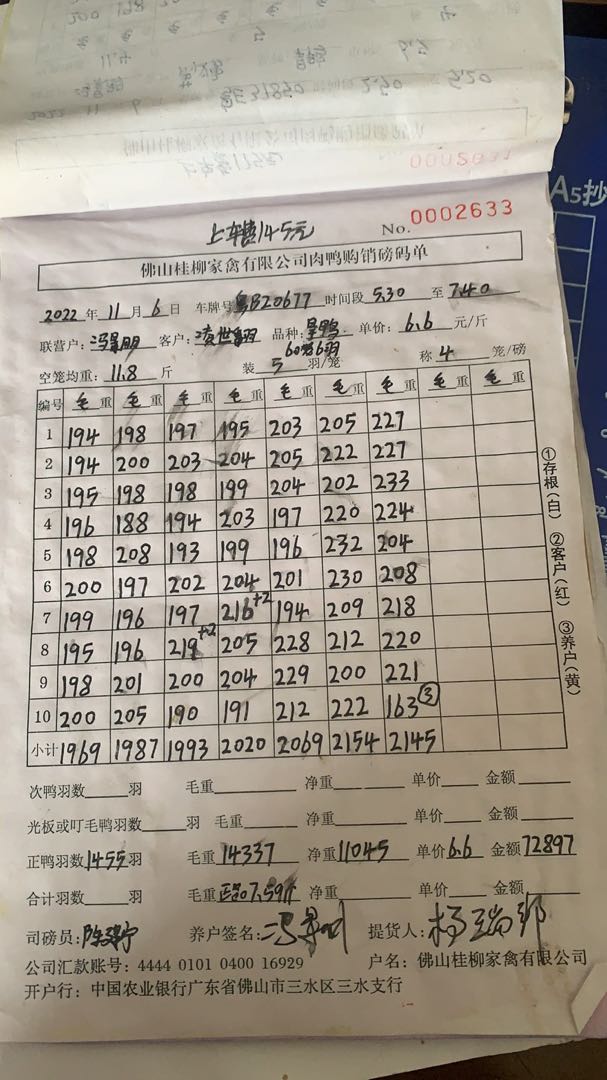 0002631
A5抄
上车费145元 No. 0002633
佛山桂柳家禽有限公司肉鸭购销磅码单
2022年 11月 6日 车牌号 粤B20677 时间段 5.30 至 7.40
联营户: 冯景明 客户: 凌世 品种: 鸭 单价: 6.6 元/斤
空笼均重: 11.8 斤 装 5 羽/笼 称 4 笼/磅
编号 毛重 毛重 毛重 毛重 毛重 毛重 毛重 毛重 毛重
1 194 198 197 195 203 205 227
2 194 200 203 204 205 222 227
3 195 198 198 199 204 202 233
4 196 188 194 203 197 220 224
5 198 208 193 199 196 232 204
6 200 197 202 204 201 230 208
7 199 196 197 216+2 194 209 218
8 195 196 219+2 205 228 212 220
9 198 201 200 204 229 200 221
10 200 205 190 191 212 222 163③
小计 1969 1987 1993 2020 2069 2154 2145
①存根(白) ②客户(红) ③养户(黄)
次鸭羽数 羽 毛重 净重 单价 金额
光板或叮毛鸭羽数 羽 毛重 净重 单价 金额
正鸭羽数 1455 羽 毛重 14337 净重 11045 单价 6.6 金额 72897
合计羽数 羽 毛重 7.59斤 净重 单价 金额
司磅员: 养户签名: 冯景明 提货人:
公司汇款账号: 4444 0101 0400 16929 户名: 佛山桂柳家禽有限公司
开户行: 中国农业银行广东省佛山市三水区三水支行